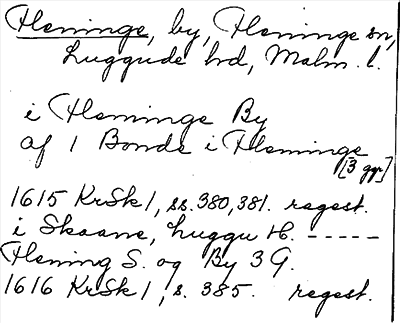 Fleninge, by, Fleninge sn,
Luggude hd, Malm. l.
i Fleninge By
af 1 Bonde i Fleninge
[3 ggr]
1615 KrSk 1, ss. 380, 381. regest.
i Skaane, Luggu H. -----
Flening S. og By 3 G.
1616 KrSk 1, s. 385. regest.